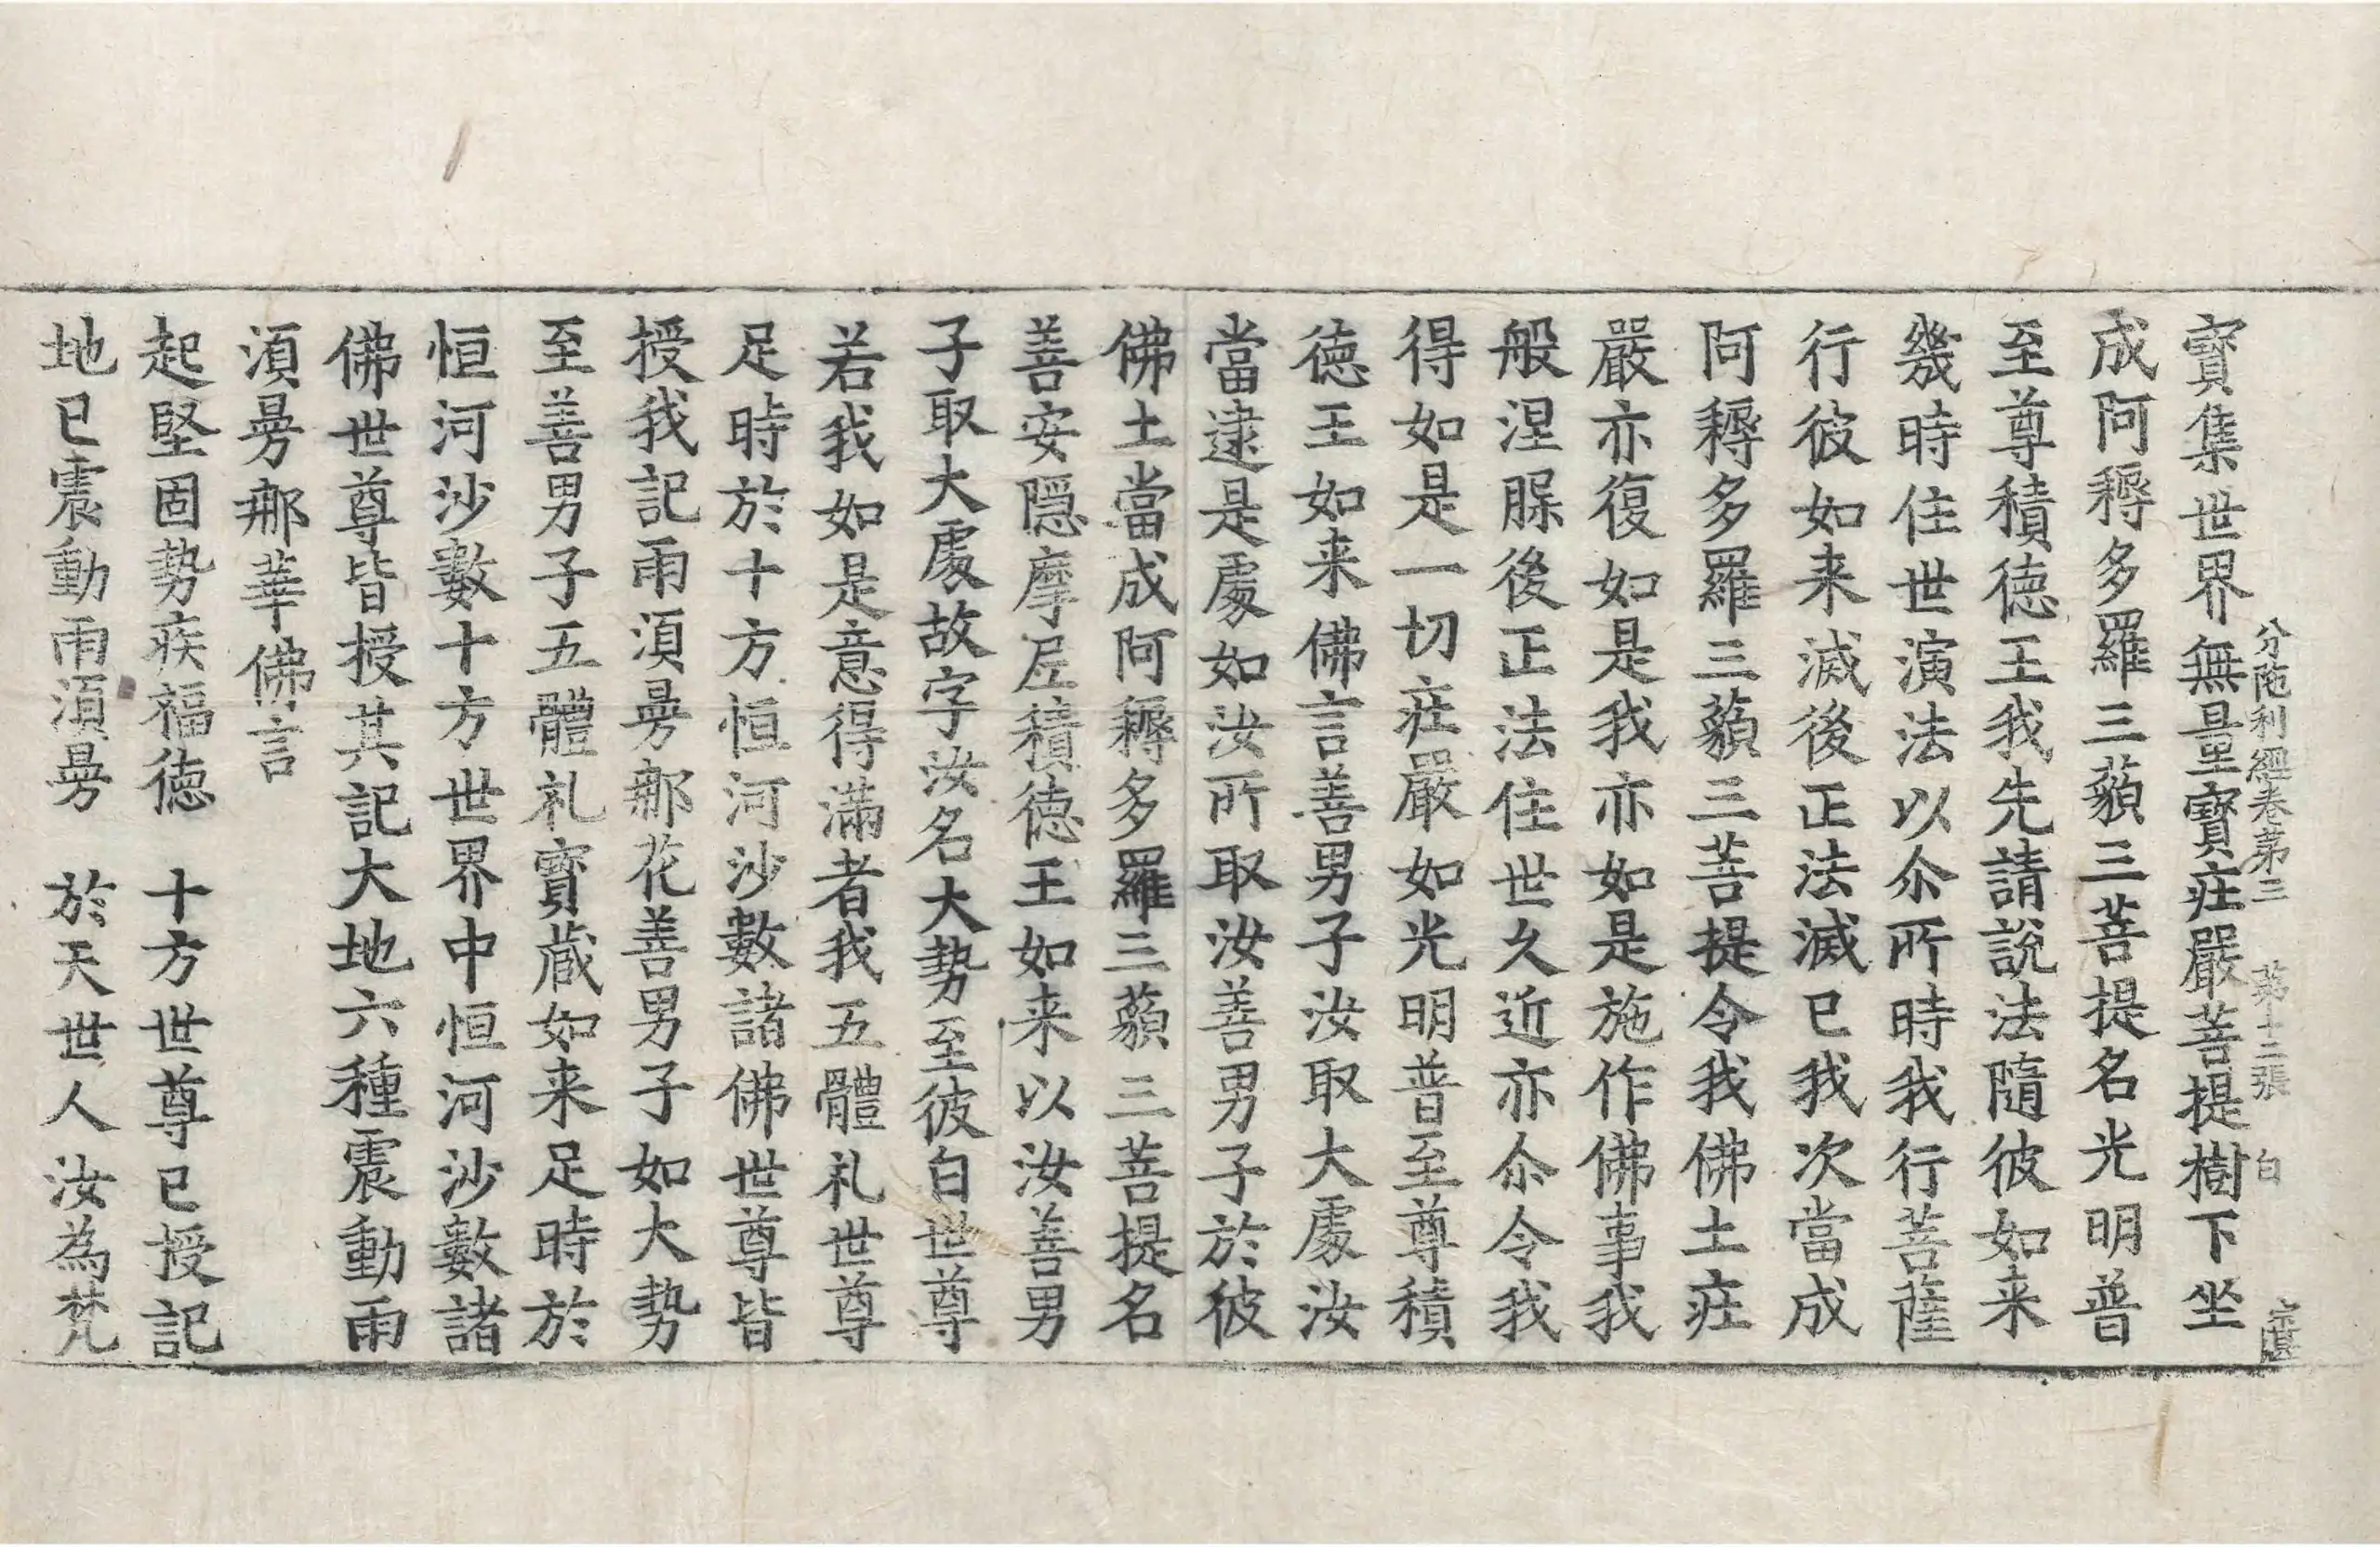 分陁利經卷第三 第十二張 白
寶集世界無量寶疘嚴菩提樹下坐
成阿耨多羅三藐三菩提名光明普
至尊積德王我先請說法隨彼如来
幾時住世演法以尒所時我行菩薩
行彼如来滅後正法滅已我次當成
阿耨多羅三藐三菩提令我佛土疘
嚴亦復如是我亦如是施作佛事我
般涅脲後正法住世久近亦尒令我
得如是一切疘嚴如光明普至尊積
德王如来佛言善男子汝取大處汝
當逮是處如汝所取汝善男子於彼
佛土當成阿耨多羅三藐三菩提名
善安隱摩尼積德王如来以汝善男
子取大處故字汝名大勢至彼白世尊
若我如是意得滿者我五體礼世尊
足時於十方恒河沙數諸佛世尊皆
授我記雨湏曼那花善男子如大勢
至善男子五體礼寶蔵如来足時於
恒河沙數十方世界中恒河沙數諸
佛世尊皆授其記大地六種震動雨
湏曼那華佛言
起堅固勢疾福德 十方世尊已授記
地已震動雨湏曼 於天世人汝為梵